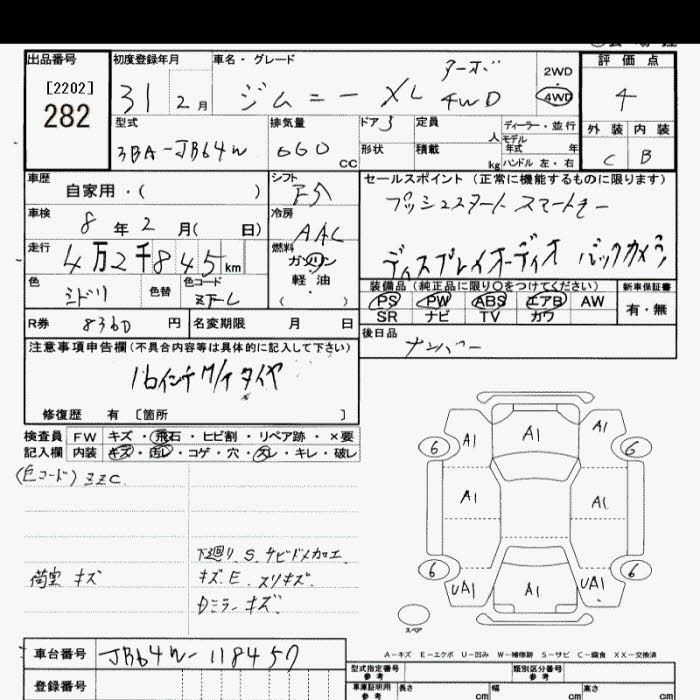 出品番号 初度登録年月 車名・グレード 評価点
[2202]
282
31 2月 ジムニー XL ターボ 4WD
2WD
4WD
4
型式 排気量 ドア 3 定員 人 ディーラー・並行 外装 内装
3BA-JB64W 660 CC 形状 積載 kg モデル年式 年 C B
ハンドル 左・右
車歴 シフト セールスポイント (正常に機能するものに限ります)
自家用・( )
プッシュスタート スマートキー
車検 8年 2月( 日) 冷房 AAC
走行 4万2千845km 燃料 ガソリン ディスプレイオーディオ バックカメラ
軽油
( )
色 ミドリ 色替 色コード
装備品(純正品に限り○をつけてください) 新車保証書
PS PW ABS エアB AW 有・無
SR ナビ TV カワ
R券 8360円 名変期限 月 日 後日品
ナンバー
注意事項申告欄(不具合内容等は具体的に記入して下さい)
16インチ タイヤ
修復歴 有 [箇所 ]
検査員 FW キズ・飛石・ヒビ割・リペア跡・×要
記入欄 内装 キズ・店レ・コゲ・穴・スレ・キレ・破レ
(色コード) ZZC
A1 A1 A1
6 6
A1 A1
下廻り、S、サビドメカエ
荷室 キズ キズ、E、スリキズ、
Dミラーキズ、
6 6
UA1 A1 UA1
スペア
A-キズ E-エクボ U-凹み W-補修跡 S-サビ C-腐食 XX-交換済
車台番号 JB64W-118457
型式指定番号 参考 類別区分番号 参考
登録番号 車庫証明用 参考 長さ cm 幅 cm 高さ cm